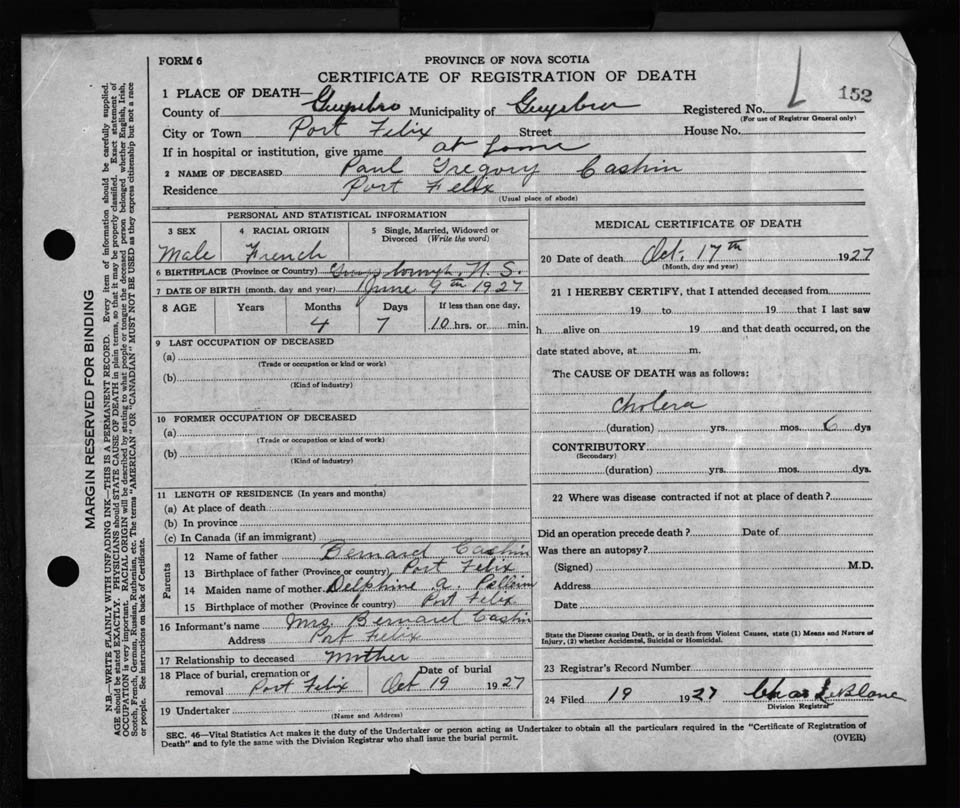 FORM 6
PROVINCE OF NOVA SCOTIA
CERTIFICATE OF REGISTRATION OF DEATH
152
1 PLACE OF DEATH—
County of Guysbro Municipality of Guysboro Registered No.
(For use of Registrar General only)
City or Town Port Felix Street House No.
If in hospital or institution, give name at home
2 NAME OF DECEASED Paul Gregory Cashin
Residence Port Felix
(Usual place of abode)
PERSONAL AND STATISTICAL INFORMATION
3 SEX 4 RACIAL ORIGIN 5 Single, Married, Widowed or Divorced (Write the word)
Male French
6 BIRTHPLACE (Province or Country) Guysborough. N. S.
7 DATE OF BIRTH (month, day and year) June 9th 1927
8 AGE Years Months Days If less than one day,
4 7 10 hrs. or min.
9 LAST OCCUPATION OF DECEASED
(a)
(Trade or occupation or kind of work)
(b)
(Kind of industry)
10 FORMER OCCUPATION OF DECEASED
(a)
(Trade or occupation or kind of work)
(b)
(Kind of industry)
11 LENGTH OF RESIDENCE (In years and months)
(a) At place of death
(b) In province
(c) In Canada (if an immigrant)
Parents
12 Name of father Bernard Cashin
13 Birthplace of father (Province or country) Port Felix
14 Maiden name of mother Delphine a.
15 Birthplace of mother (Province or country) Port Felix
16 Informant's name Mrs. Bernard Cashin
Address Port Felix
17 Relationship to deceased Mother
18 Place of burial, cremation or removal Port Felix Date of burial Oct 19 1927
19 Undertaker
(Name and Address)
MEDICAL CERTIFICATE OF DEATH
20 Date of death Oct. 17th 1927
(Month, day and year)
21 I HEREBY CERTIFY, that I attended deceased from
19 to 19 that I last saw
h alive on 19 and that death occurred, on the
date stated above, at m.
The CAUSE OF DEATH was as follows:
Cholera
(duration) yrs. mos. 6 dys
CONTRIBUTORY
(Secondary)
(duration) yrs. mos. dys.
22 Where was disease contracted if not at place of death?
Did an operation precede death? Date of
Was there an autopsy?
(Signed) M.D.
Address
Date
State the Disease causing Death, or in death from Violent Causes, state (1) Means and Nature of
Injury, (2) whether Accidental, Suicidal or Homicidal.
23 Registrar's Record Number
24 Filed 19 1927 Chas LeBlanc
Division Registrar
SEC. 46—Vital Statistics Act makes it the duty of the Undertaker or person acting as Undertaker to obtain all the particulars required in the "Certificate of Registration of
Death" and to fyle the same with the Division Registrar who shall issue the burial permit.
(OVER)
MARGIN RESERVED FOR BINDING
N.B.—WRITE PLAINLY WITH UNFADING INK—THIS IS A PERMANENT RECORD. Every item of information should be carefully supplied.
AGE should be stated EXACTLY. PHYSICIANS should STATE CAUSE OF DEATH in plain terms, so that it may be properly classified. Exact statement of
OCCUPATION is very important. RACIAL ORIGIN will be described by stating to what people or tongue the deceased person belonged whether English, Irish,
Scotch, French, German, Russian, Ruthenian, etc. The terms "AMERICAN" OR "CANADIAN" MUST NOT BE USED as they express citizenship but not a race
or people. See instructions on back of Certificate.